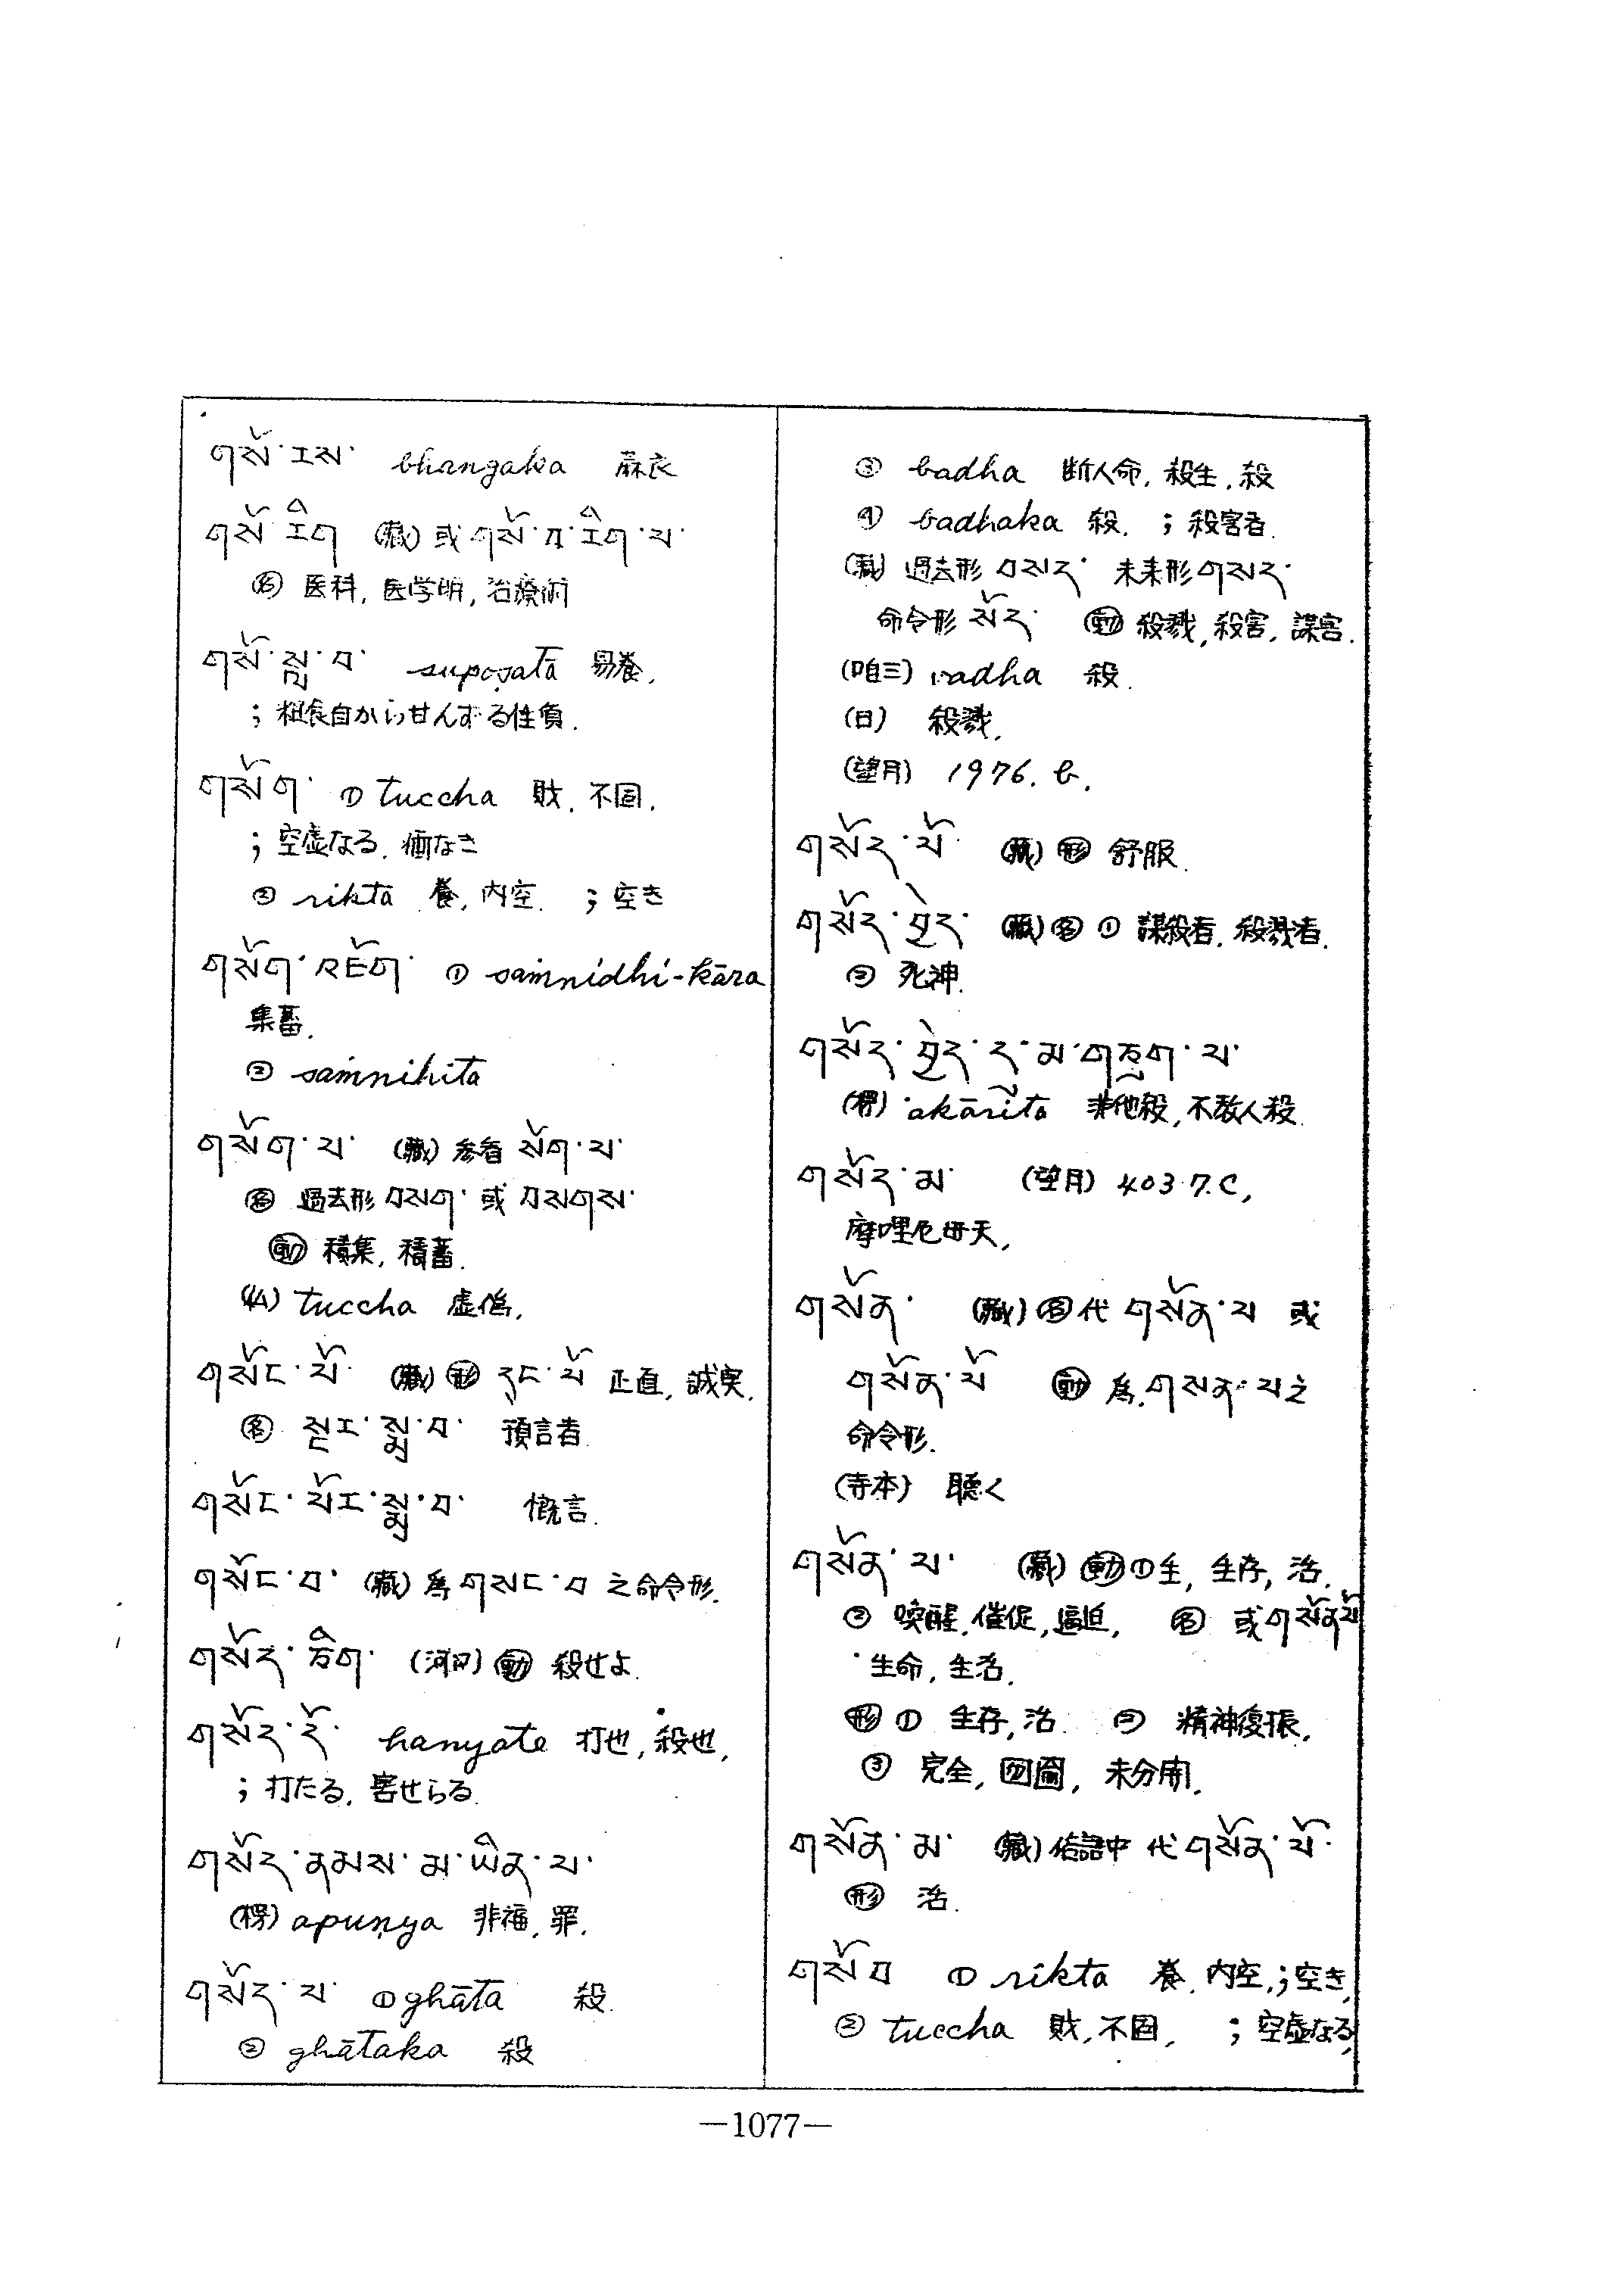 གསོ་རས་ bhangaka 麻衣
གསོ་རིག (藏) 或 གསོ་བ་རིག་པ་
㊔ 医科, 医学明, 治療術
གསོ་སླ་བ་ supoṣatā 易養,
; 粗食自から甘んずる性質.
གསོག་ ① tuccha 敗, 不固,
; 空虚なる, 価なき
② rikta 養, 内空. ; 空き
གསོག་འཇོག་ ① saṁnidhi-kāra
集蓄.
② saṁnihita
གསོག་པ་ (藏) 参看 སོག་པ་
㊔ 過去形 བསག་ 或 བསགས་
㊔ 積集, 積蓄.
(仏) tuccha 虚偽,
གསོང་པོ་ (藏) 形 དྲང་པོ 正直, 誠実.
名 སྔང་སྨྲ་བ་ 預言者
གསོང་པོར་སྨྲ་བ་ 慨言.
གསོང་བ་ (藏) 為 གསང་བ 之命令形.
གསོད་ཅིག་ (河口) 動 殺せよ.
གསོད་དོ་ hanyate 打也, 殺也,
; 打たる, 害せらる.
གསོད་ནམས་མ་ཡིན་པ་
(楞) apuṇya 非福, 罪.
གསོད་པ་ ① ghāta 殺.
② ghātaka 殺
③ badha 断人命, 殺生, 殺
④ badhaka 殺. ; 殺害者.
(藏) 過去形 བསད་ 未来形 གསད་
命令形 སོད་ 動 殺戮, 殺害, 謀害.
(唯三) vadha 殺.
(日) 殺戮,
(望月) 1976. b.
གསོད་པོ་ (藏) 形 舒服.
གསོད་བྱེད་ (藏) 名 ① 謀殺者, 殺戮者.
② 死神.
གསོད་བྱེད་དུ་མ་གཞུག་པ་
(楞) akārita 非他殺, 不教人殺.
གསོད་མ་ (望月) 4037.C,
摩哩厄母天,
གསོན་ (藏) 名 代 གསོན་པ 或
གསོན་པོ 動 為, གསན་པ之
命令形.
(寺本) 聴く
གསོན་པ་ (藏) 動 ① 生, 生存, 活.
② 喚醒, 催促, 逼迫, 名 或 གསོན་པོ
生命, 生活.
形 ① 生存, 活. ② 精神復振,
③ 完全, 囫圇, 未分開.
གསོན་མ་ (藏) 俗語中 代 གསོན་པོ་
形 活.
གསོབ ① rikta 養, 内空, ; 空き,
② tuccha 敗, 不固, ; 空虚なる,
—1077—